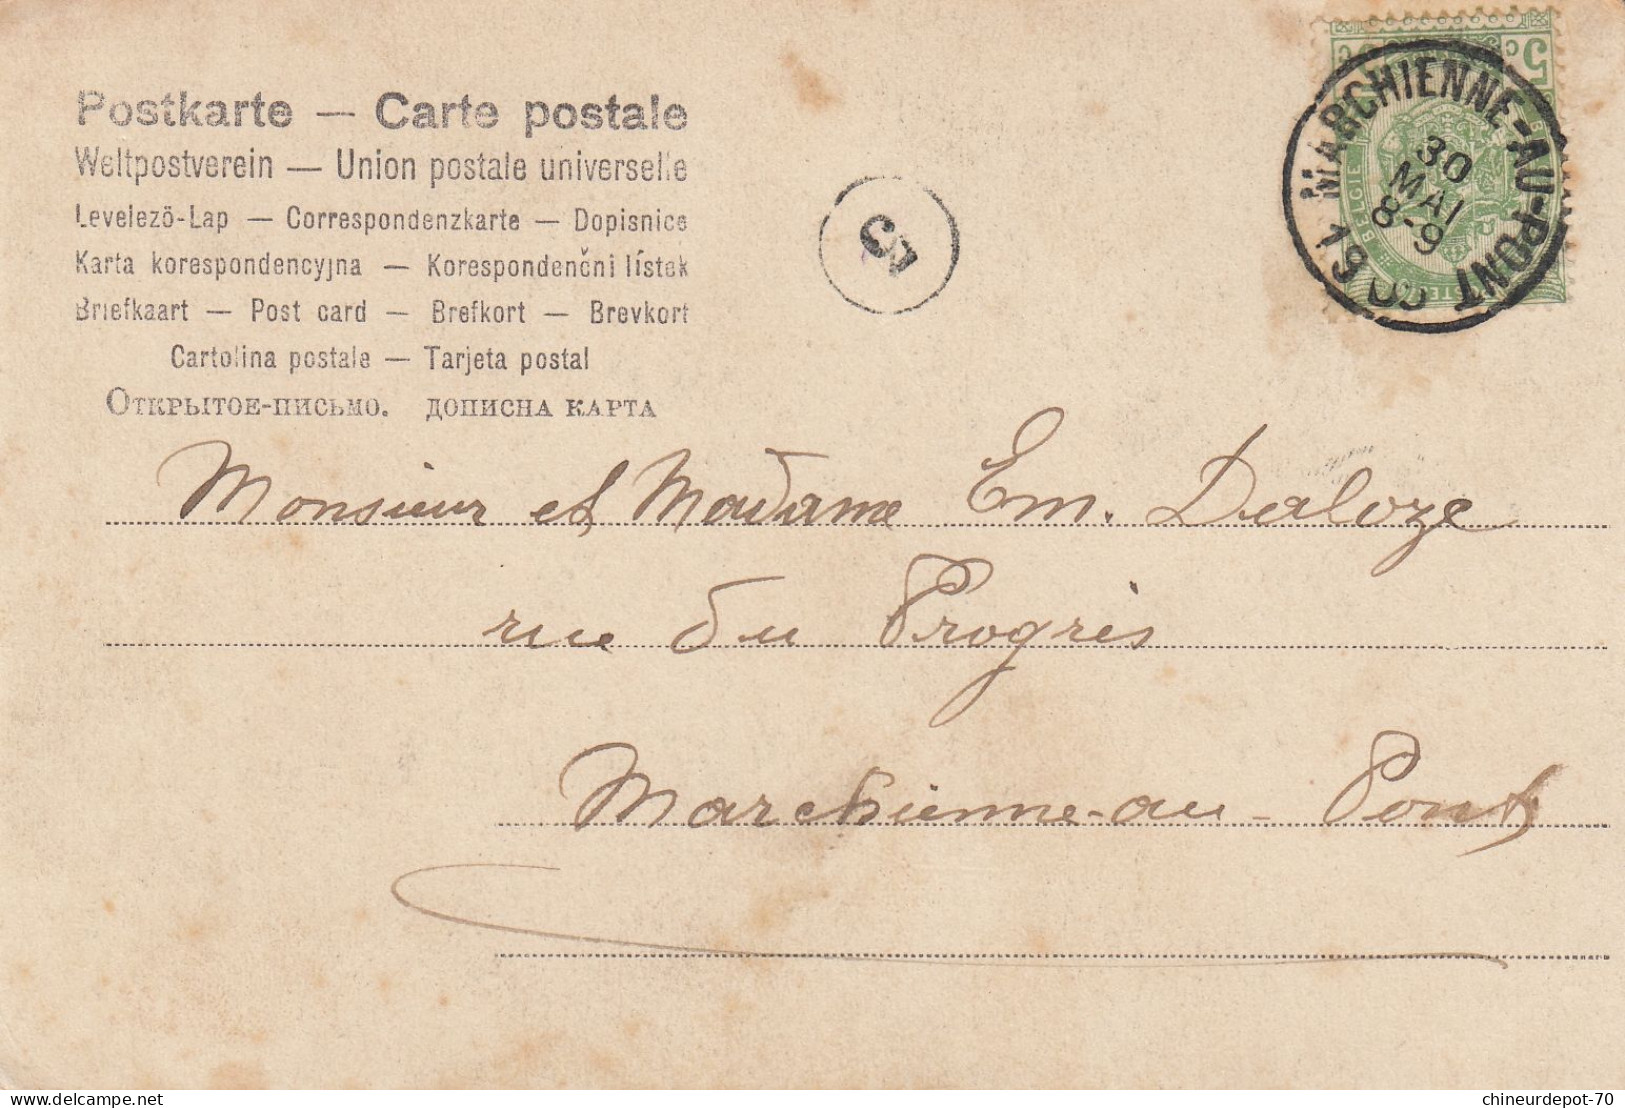 Postkarte — Carte postale
Weltpostverein — Union postale universelle
Levelezö-Lap — Correspondenzkarte — Dopisnice
Karta korespondencyjna — Korespondenčni lístek
Briefkaart — Post card — Brefkort — Brevkort
Cartolina postale — Tarjeta postal
Открытое-письмо. дописна карта
5 c
BELGIE
MARCHIENNE-AU-PONT
30
MAI
8-9
Monsieur et Madame Em. Daloze
rue du Progrès
Marchienne-au-Pont
delcampe.net
chineurdepot-70